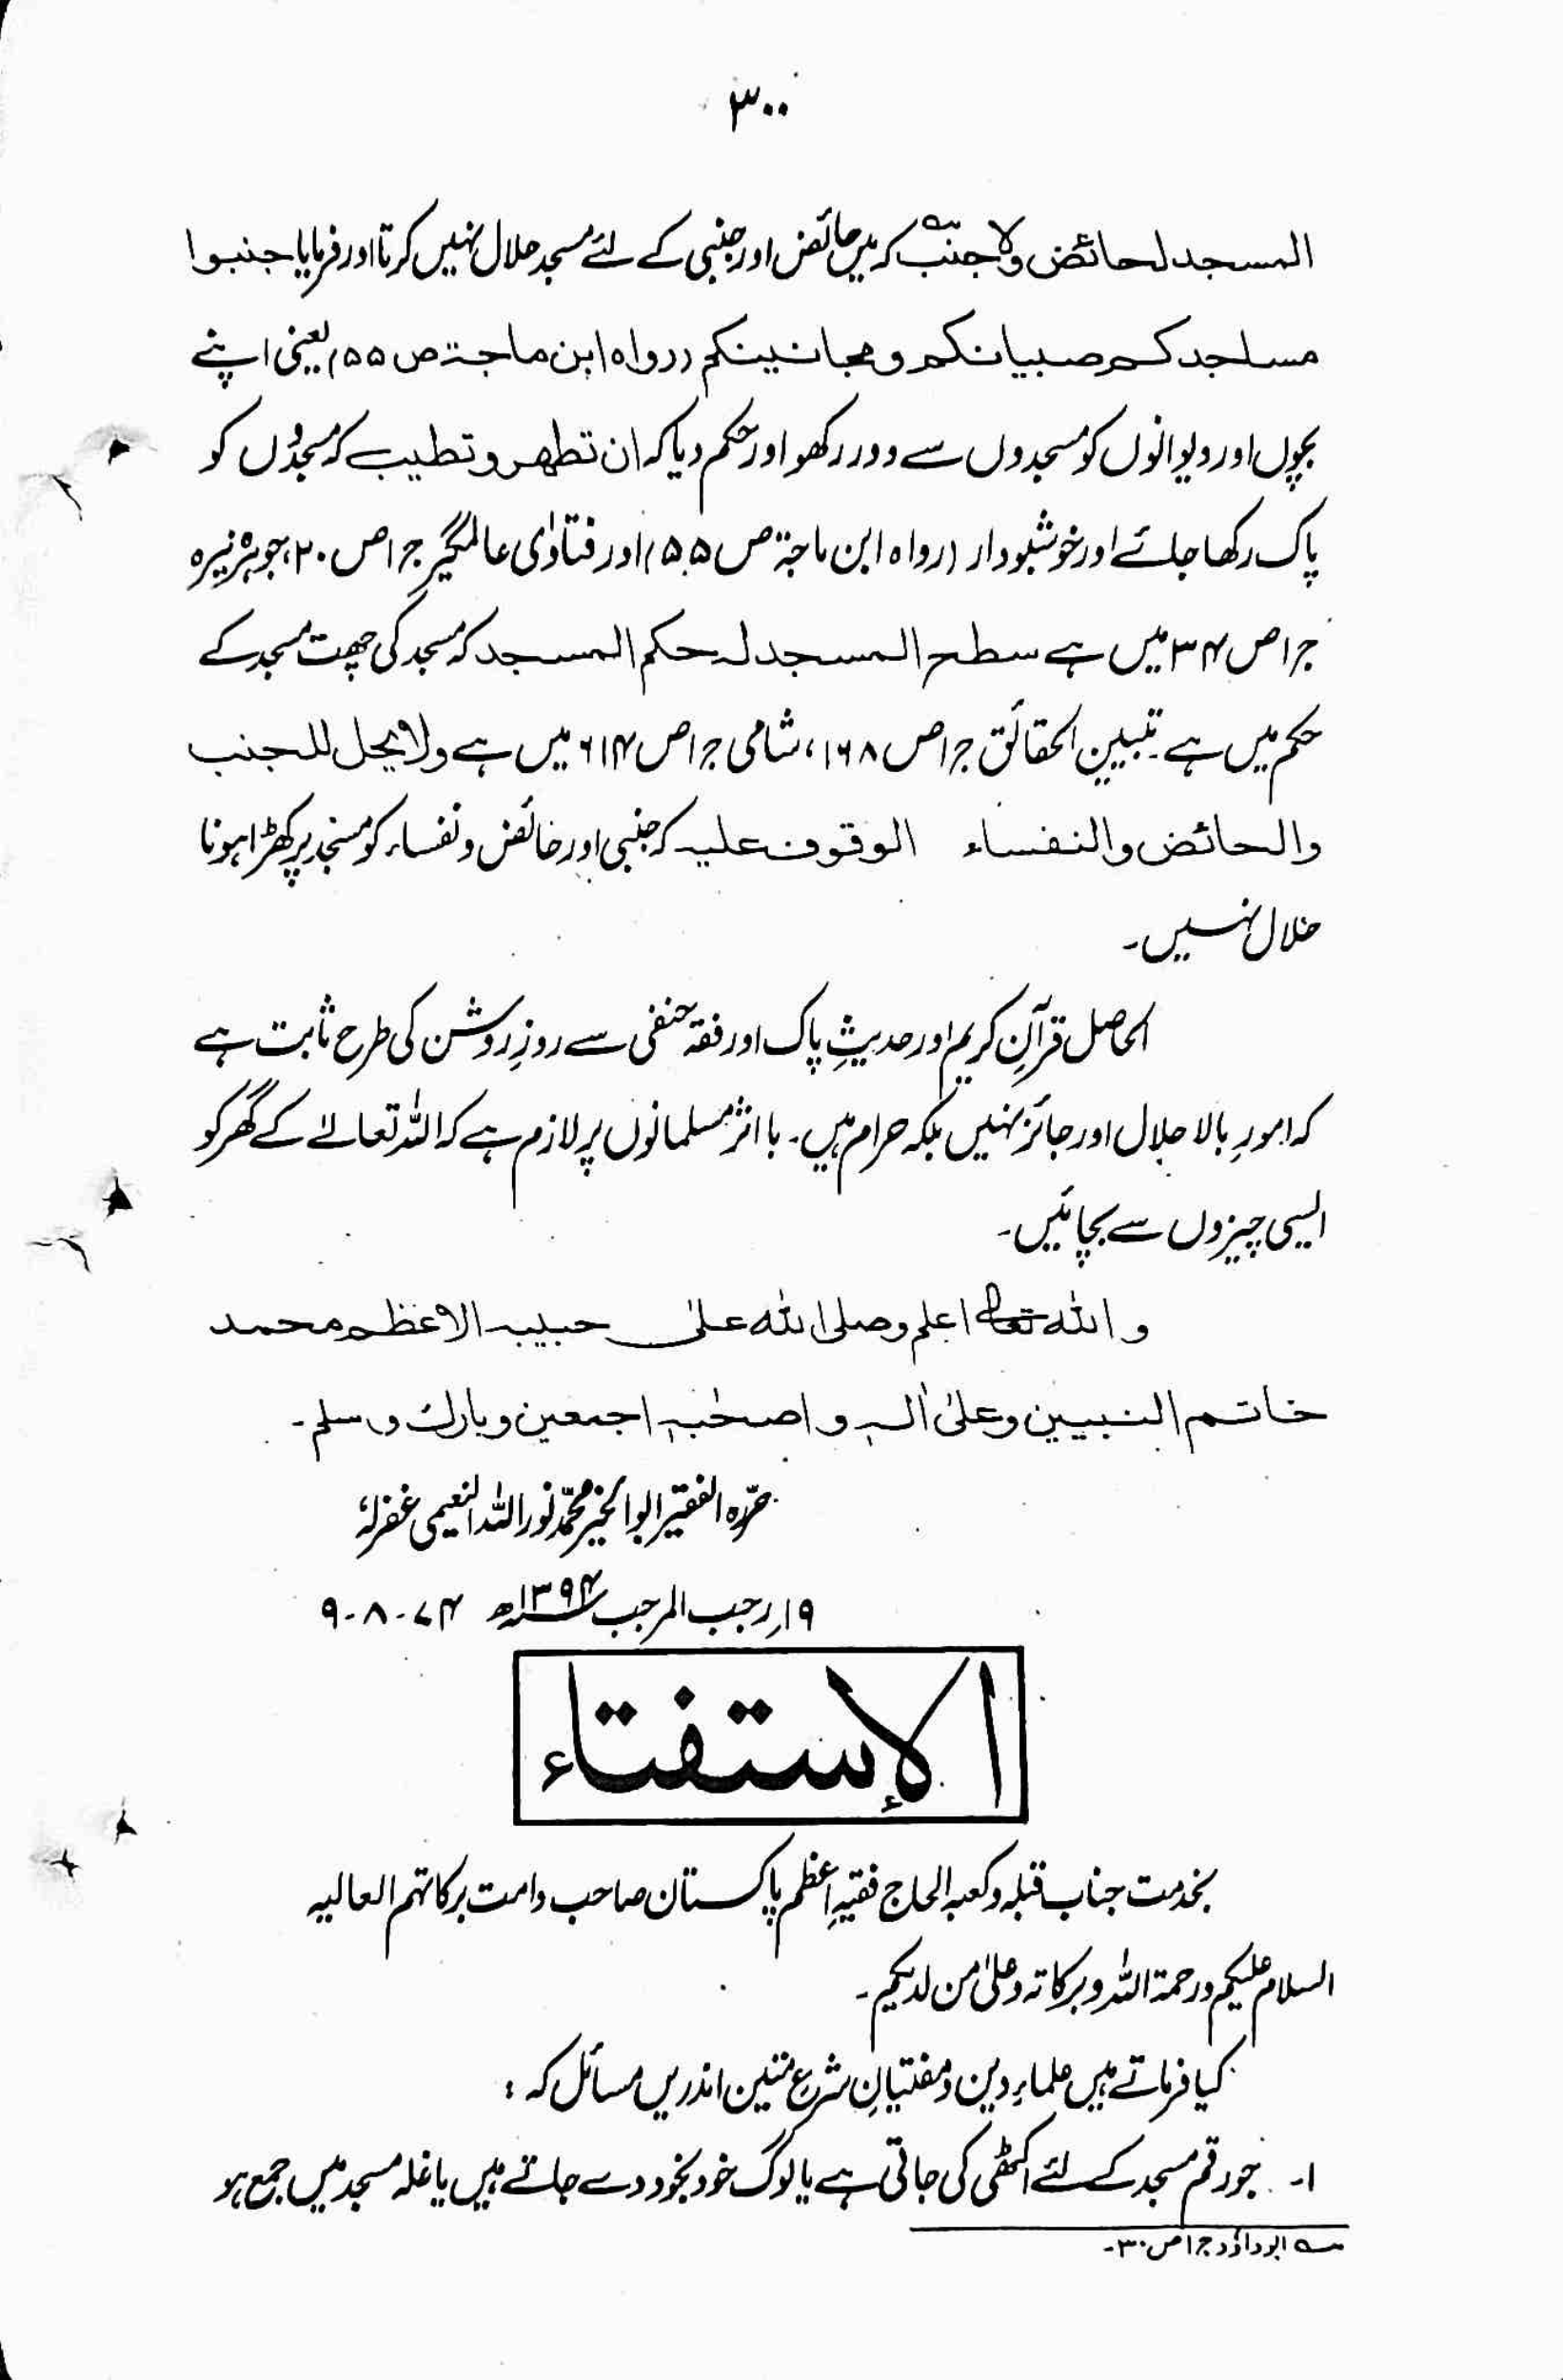 ۳۰۰
المسجد لحائض ولاجنب؂ کہ میں حائض اور جنبی کے لئے مسجد حلال نہیں کرتا اور فرمایا جنبوا
مساجدکم صبیانکم و مجانینکم (رواہ ابن ماجۃ ص ۵۵) یعنی اپنے
بچوں اور دیوانوں کو مسجدوں سے دور رکھو اور حکم دیا کہ ان تطھر و تطیب کہ مسجدوں کو
پاک رکھا جائے اور خوشبودار (رواہ ابن ماجۃ ص ۵۵) اور فتاوٰی عالمگیر ج۱ ص ۲۰، جوہرہ نیرہ
ج۱ ص ۳۴ میں ہے سطح المسجد لہ حکم المسجد کہ مسجد کی چھت مسجد کے
حکم میں ہے۔ تبیین الحقائق ج۱ ص ۱۶۸، شامی ج۱ ص ۶۱۴ میں ہے ولا یحل للجنب
والحائض والنفساء الوقوف علیہ کہ جنبی اور حائض و نفساء کو مسجد پر کھڑا ہونا
حلال نہیں۔
الحاصل قرآنِ کریم اور حدیثِ پاک اور فقہ حنفی سے روزِ روشن کی طرح ثابت ہے
کہ امورِ بالا حلال اور جائز نہیں بلکہ حرام ہیں۔ با اثر مسلمانوں پر لازم ہے کہ اللہ تعالےٰ کے گھر کو
ایسی چیزوں سے بچائیں۔
واللہ تعالےٰ اعلم وصلی اللہ علیٰ حبیبہ الاعظم محمد
خاتم النبیین وعلیٰ اٰلہٖ و اصحٰبہٖ اجمعین وبارک وسلم۔
حرّرہ الفقیر ابوالخیر محمّد نور اللہ النعیمی غفرلہٗ
۱۹؍رجب المرجب ۱۳۹۴ھ ۷۴-۸-۹
الإستفتاء
بخدمت جناب قبلہ و کعبہ الحاج فقیہِ اعظم پاکستان صاحب دامت برکاتہم العالیہ
السلام علیکم ورحمۃ اللہ وبرکاتہ وعلیٰ من لدیکم۔
کیا فرماتے ہیں علماءِ دین و مفتیانِ شرع متین اندریں مسائل کہ :
۱۔ جو رقم مسجد کے لئے اکٹھی کی جاتی ہے یا لوگ خود بخود دے جاتے ہیں یا غلہ مسجد میں جمع ہو
؂ ابوداؤد ج۱ ص ۳۰۔